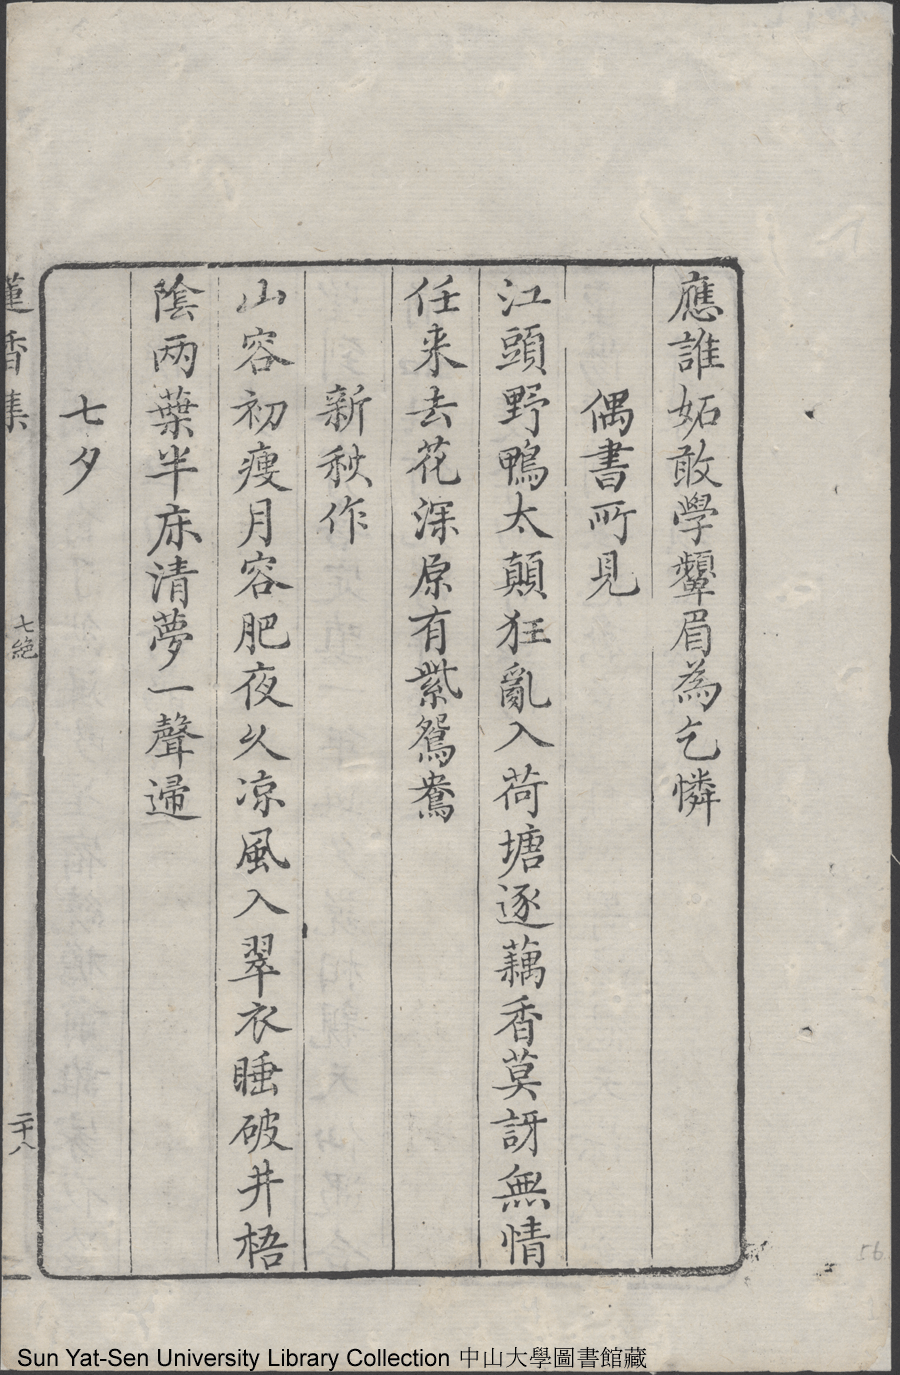 應誰妬敢學顰眉為乞憐
偶書所見
江頭野鴨太顛狂亂入荷塘逐藕香莫訝無情
任来去花深原有紫鴛鴦
新秋作
山容初瘦月容肥夜乆凉風入翠衣睡破井梧
陰两葉半床清夢一聲歸
七夕
蓮香集
七絶
二十八
56
Sun Yat-Sen University Library Collection 中山大學圖書館藏